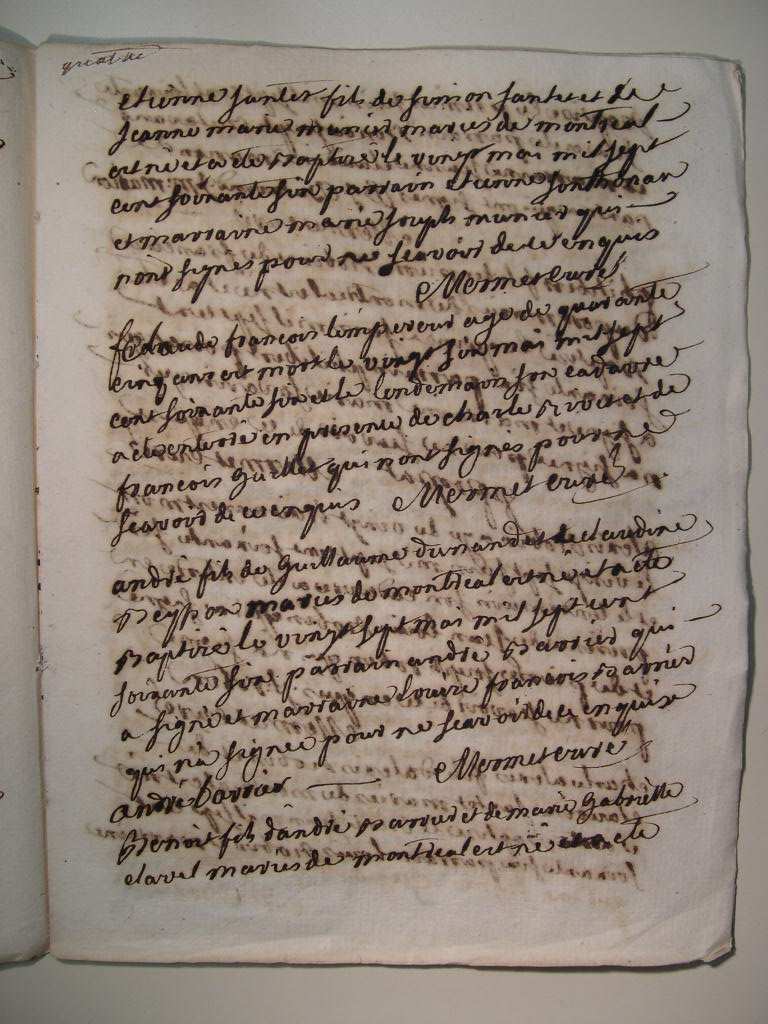 etienne santer fils de simon santer et de
jeanne marie munier mariés de montreal
est né et a eté baptisé le vingt mai mil sept
cent soixante six parrain etienne
et marraine marie joseph munier qui
nont signés pour ne scavoir de ce enquis
Mermet curé
claude francois l'empereur agé de quarante
cinq ans est mort le vingt six mai mil sept
cent soixante six et le lendemain son cadavre
a eté enterré en présence de charle rivet et de
francois guillot qui nont signés pour ne
scavoir de ce enquis Mermet curé
andré fils de guillaume dunand et de claudine
beysson mariés de montreal est né et a eté
baptisé le vingt sept mai mil sept cent
soixante six parrain andré barrier qui
a signé et marraine louise francois barrier
qui n'a signée pour ne scavoir de ce enquise
andré barrier Mermet curé
benoit fils d'andré barrier et de marie gabrielle
clavel mariés de montreal est né et a eté